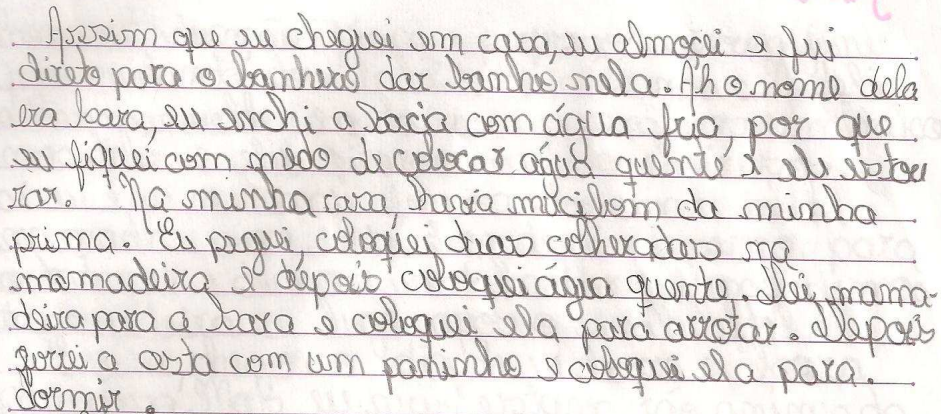 Assim que eu cheguei em casa, eu almocei e fui
direto para o banhero dar banho nela. Ah o nome dela
era Sara, eu enchi a bacia com água fria, por que
eu fiquei com medo de colocar água quente e ele estou
rar. Na minha casa havia mucilom da minha
prima. Eu peguei coloquei duas colheradas na
mamadeira e depois coloquei água quente. Dei mama-
deira para a Sara e coloquei ela para arrotar. Depois
forrei a costa com um paninho e coloquei ela para.
dormir.